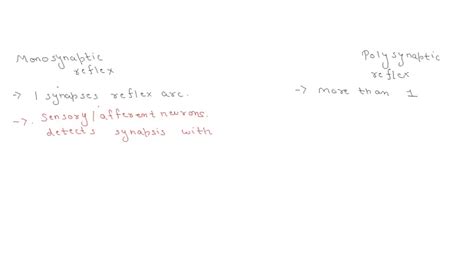 Monosynaptic
reflex
-> 1 synapses reflex arc.
->. Sensory/afferent neurons.
detects synapsis with
Polysynaptic
reflex
-> More than 1